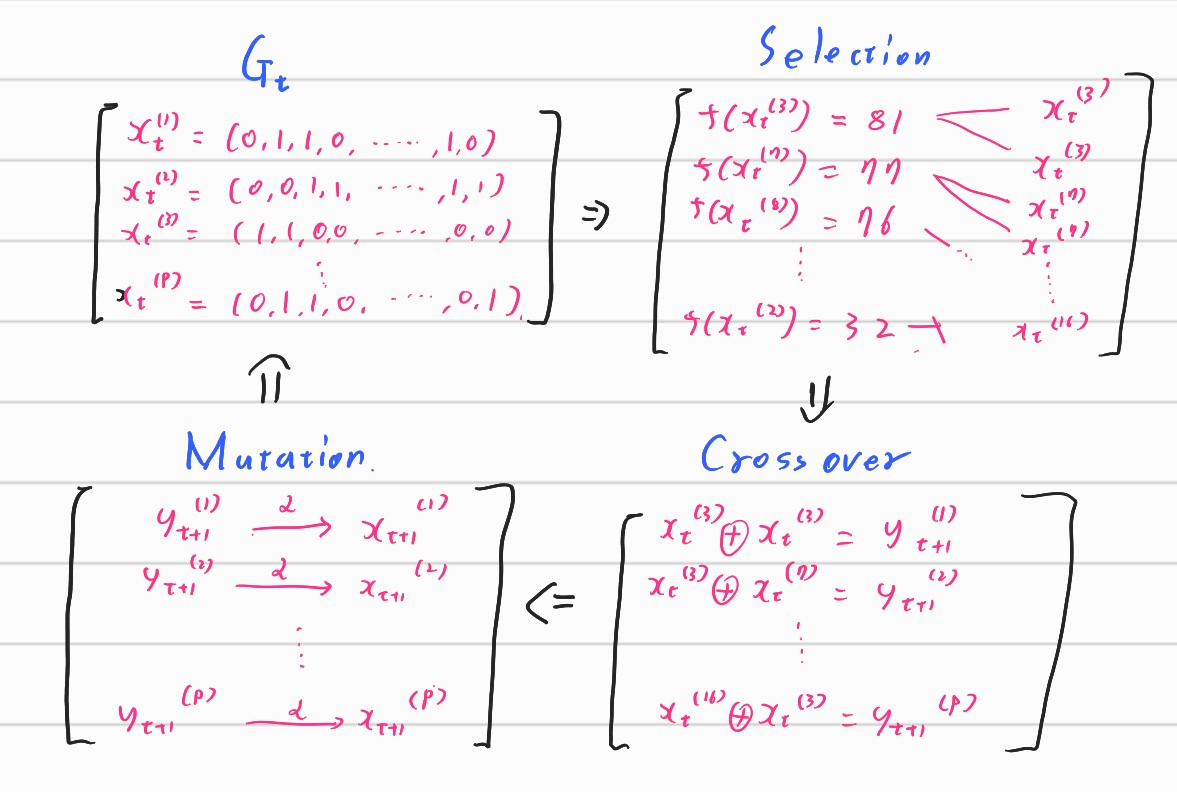 G_t
x_t^(1) = (0,1,1,0, ‥‥‥ ,1,0)
x_t^(2) = (0,0,1,1, ‥‥‥ ,1,1)
x_t^(3) = (1,1,0,0, ‥‥‥ ,0,0)
⋮
x_t^(P) = (0,1,1,0, ‥‥‥ ,0,1)
⇒
Selection
f(x_t^(3)) = 81 x_t^(3)
x_t^(3)
f(x_t^(7)) = 77 x_t^(7)
f(x_t^(8)) = 76 x_t^(7)
⋮ ⋮
f(x_t^(2)) = 32 x_t^(16)
⇓
Cross over
x_t^(3) ⊕ x_t^(3) = y_t+1^(1)
x_t^(3) ⊕ x_t^(7) = y_t+1^(2)
⋮
x_t^(16) ⊕ x_t^(3) = y_t+1^(P)
⇐
Mutation.
y_t+1^(1) α→ x_t+1^(1)
y_t+1^(2) α→ x_t+1^(2)
⋮
y_t+1^(P) α→ x_t+1^(P)
⇑